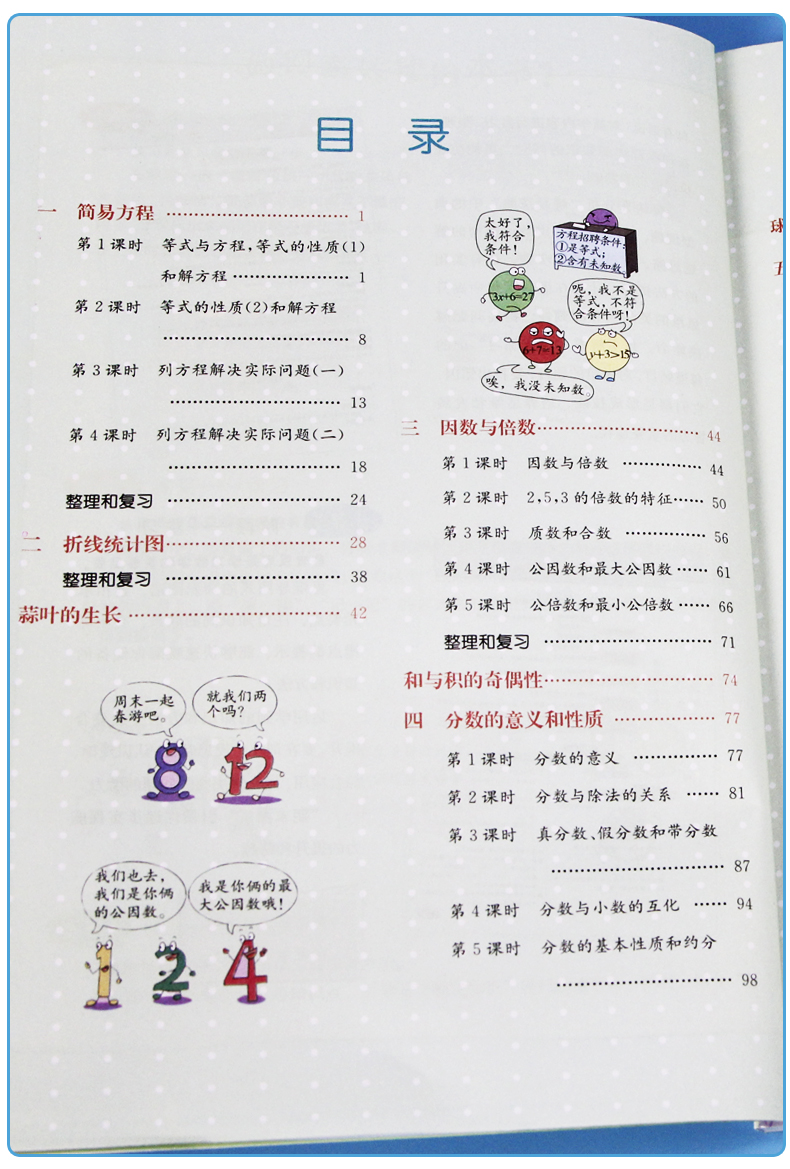 目 录
一 简易方程 ………………………… 1
第1课时 等式与方程,等式的性质(1)
和解方程 ……………… 1
第2课时 等式的性质(2)和解方程
………………………… 8
第3课时 列方程解决实际问题(一)
………………………… 13
第4课时 列方程解决实际问题(二)
………………………… 18
整理和复习 ………………………… 24
二 折线统计图………………………… 28
整理和复习 ………………………… 38
蒜叶的生长 ………………………… 42
周末一起
春游吧。
就我们两
个吗?
8
12
我们也去,
我们是你俩
的公因数。
我是你俩的最
大公因数哦!
1
2
4
太好了,
我符合
条件!
方程招聘条件:
①是等式;
②含有未知数。
3x+6=27
呃,我不是
等式,不符
合条件呀!
6+7=13
y+3>15
唉,我没未知数。
三 因数与倍数……………………… 44
第1课时 因数与倍数 …………… 44
第2课时 2,5,3的倍数的特征…… 50
第3课时 质数和合数 …………… 56
第4课时 公因数和最大公因数…… 61
第5课时 公倍数和最小公倍数…… 66
整理和复习 ………………………… 71
和与积的奇偶性……………………… 74
四 分数的意义和性质 …………… 77
第1课时 分数的意义 …………… 77
第2课时 分数与除法的关系 …… 81
第3课时 真分数、假分数和带分数
………………………… 87
第4课时 分数与小数的互化 …… 94
第5课时 分数的基本性质和约分
………………………… 98
球
五